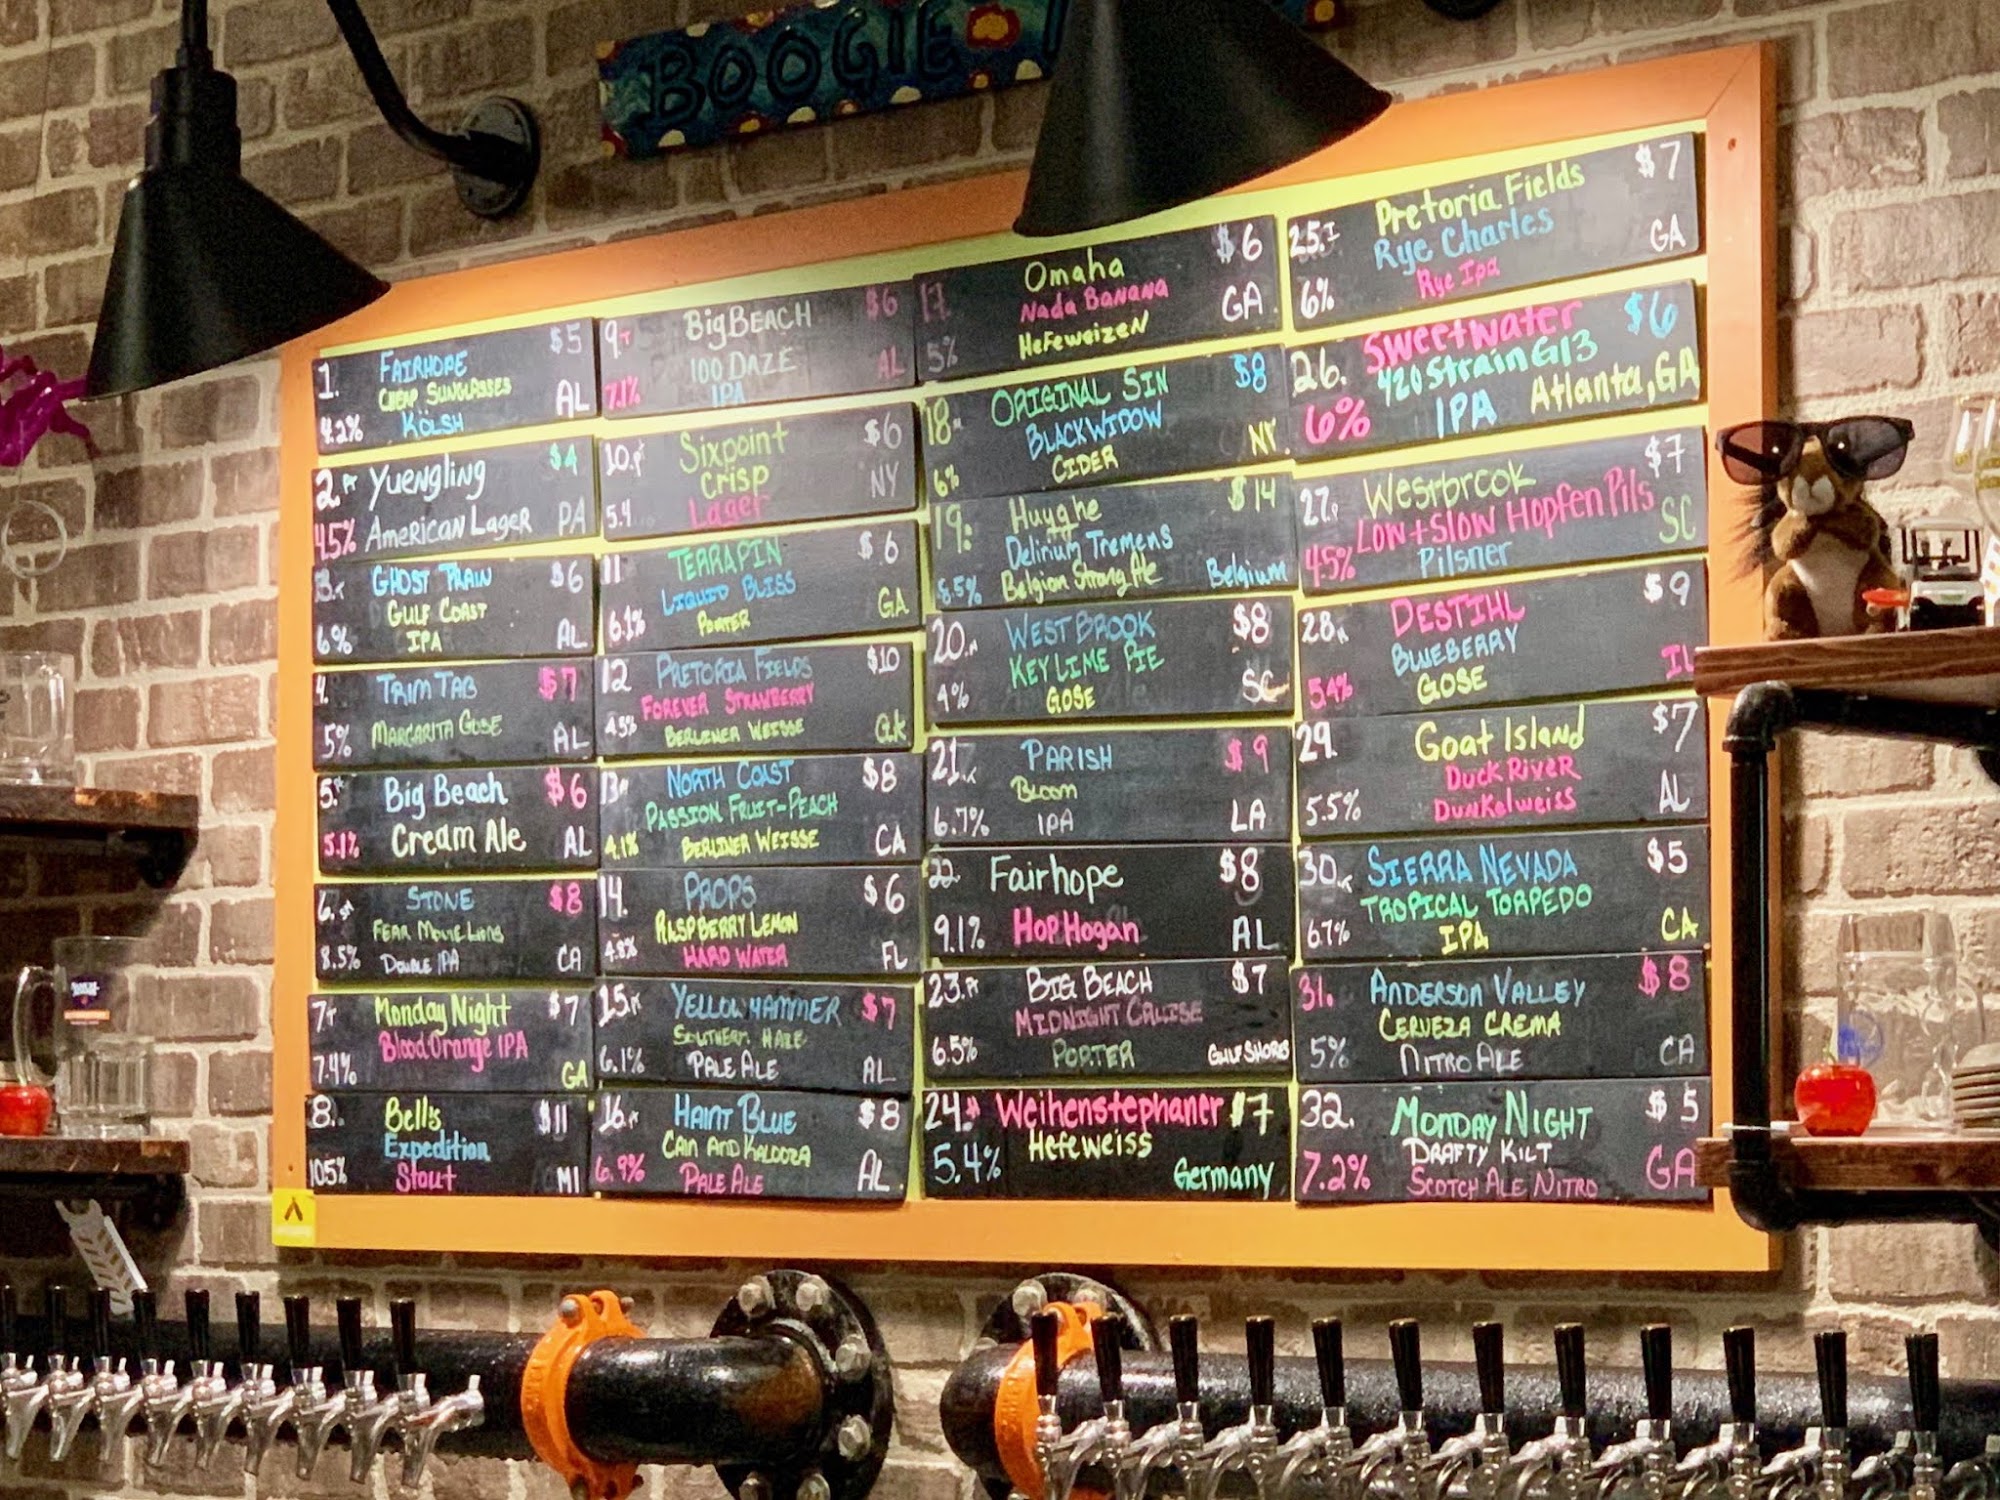 BOOGIE
1. FAIRHOPE $5
CHEAP SUNGLASSES AL
4.2% KÖLSH
2. Yuengling $4
4.5% American Lager PA
3. GHOST TRAIN $6
GULF COAST
6% IPA AL
4. TRIM TAB $7
5% MARGARITA GOSE AL
5. Big Beach $6
5.1% Cream Ale AL
6. STONE $8
FEAR MOVIE LIONS
8.5% DOUBLE IPA CA
7. Monday Night $7
Blood Orange IPA
7.4% GA
8. Bell's $11
Expedition
10.5% Stout MI
9. Big BEACH $6
100 DAZE AL
7.1% IPA
10. Sixpoint $6
Crisp NY
5.4 Lager
11 TERRAPIN $6
LIQUID BLISS GA
6.1% PORTER
12 PRETORIA FIELDS $10
FOREVER STRAWBERRY
4.5% BERLINER WEISSE GA
13. NORTH COAST $8
PASSION FRUIT-PEACH
4.1% BERLINER WEISSE CA
14. PROPS $6
RASPBERRY LEMON
4.8% HARD WATER FL
15. YELLOWHAMMER $7
SOUTHERN HAZE
6.1% PALE ALE AL
16. HAINT BLUE $8
CAIN AND KALOOZA
6.9% PALE ALE AL
17. Omaha $6
Nada Banana GA
5% HeFeweizeN
18. ORIGINAL SIN $8
BLACK WIDOW NY.
6% CIDER
19. Huyghe $14
Delirium Tremens
8.5% Belgian Strong Ale Belgium
20. WEST BROOK $8
KEY LIME PIE
4% GOSE SC
21. PARISH $9
Bloom
6.7% IPA LA
22. Fairhope $8
9.1% Hop Hogan AL
23. BIG BEACH $7
MIDNIGHT CRUISE
6.5% PORTER GULF SHORES
24. Weihenstephaner $7
5.4% Hefeweiss
Germany
25. Pretoria Fields $7
Rye Charles GA
6% Rye Ipa
26. Sweetwater $6
420 Strain G13
6% IPA Atlanta, GA
27. Westbrook $7
Low+Slow Hopfen Pils SC
4.5% Pilsner
28. DESTIHL $9
BLUEBERRY
5.4% GOSE IL
29. Goat Island $7
Duck RiveR
5.5% Dunkelweiss AL
30. SIERRA NEVADA $5
TROPICAL TORPEDO
6.7% IPA CA
31. ANDERSON VALLEY $8
CERVEZA CREMA
5% NITRO ALE CA
32. MONDAY NIGHT $5
DRAFTY KILT
7.2% SCOTCH ALE NITRO GA